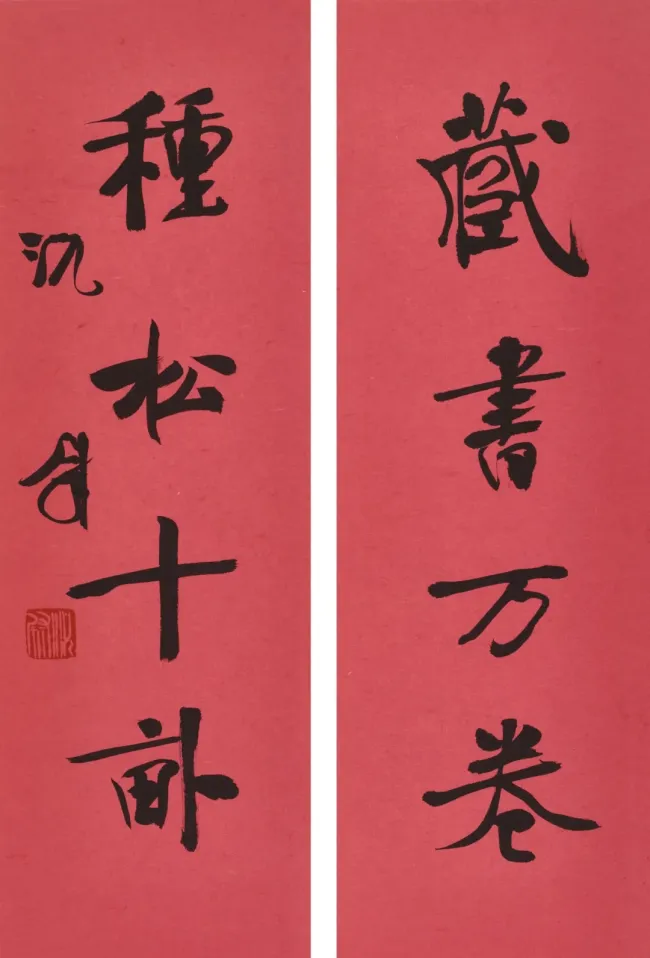 藏書万卷
種松十畝
沈鹏